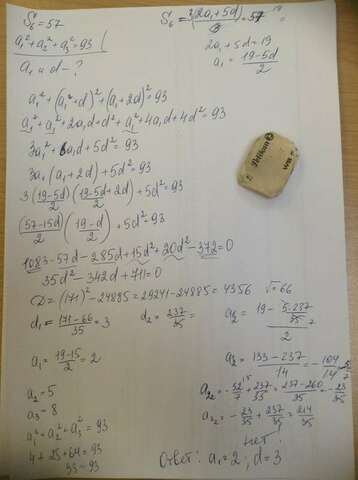 S₆=57
S₆ = 3(2a₁+5d)/3 = 57 19
a₁²+a₂²+a₃²=93
2a₁+5d=19
a₁ и d - ?
a₁ = (19-5d)/2
a₁²+(a₁+d)²+(a₁+2d)²=93
a₁²+a₁²+2a₁d+d²+a₁²+4a₁d+4d²=93
3a₁²+6a₁d+5d²=93
3a₁(a₁+2d)+5d²=93
3((19-5d)/2)((19-5d)/2+2d)+5d²=93
((57-15d)/2)((19-d)/2)+5d²=93
1083-57d-285d+15d²+20d²-372=0
35d²-342d+711=0
D=(171)²-24885=29241-24885=4356 √=66
d₁=(171-66)/35=3
d₂=237/35=
a₂=(19-5·237/35)/2
a₁=(19-15)/2=2
a₂=(133-237)/14=-104/14
a₂=5
a₂₂=-52/7+237/35=(237-260)/35=-23/35
a₃=8
a₃₂=-23/35+237/35=214/35
a₁²+a₂²+a₃²=93
нет!
4+25+64=93
93=93
Ответ: a₁=2; d=3
Pelikan
WS